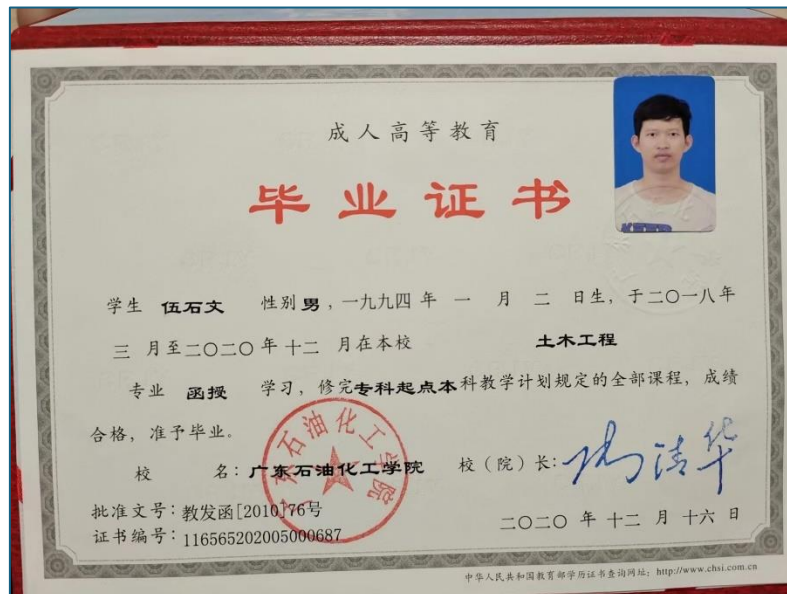 成人高等教育
毕业证书
学生 伍石文 性别男，一九九四年 一 月 二 日生，于二〇一八年
三 月至二〇二〇年十二 月在本校 土木工程
专业 函授 学习，修完专科起点本科教学计划规定的全部课程，成绩
合格，准予毕业。
校 名：广东石油化工学院 校（院）长：
广东石油化工学院
批准文号：教发函[2010]76号
证书编号：116565202005000687
二〇二〇 年 十二 月 十六 日
中华人民共和国教育部学历证书查询网址：http://www.chsi.com.cn